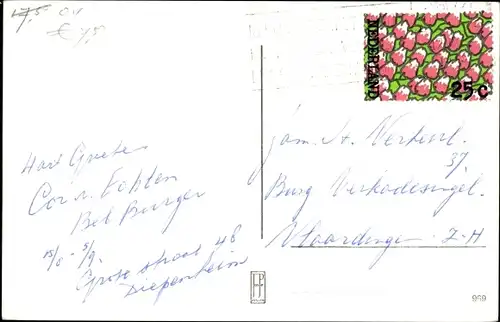 7,5
€ 4,5
NEDERLAND
25 c
Hart Groeten
Cor v. Echten
Bob Burger
15/8 - 5/9.
Grote straat 48
Diepenheim
Fam. A. Verkerk
37.
Burg Verkadesingel.
Vlaardingen Z-H
999